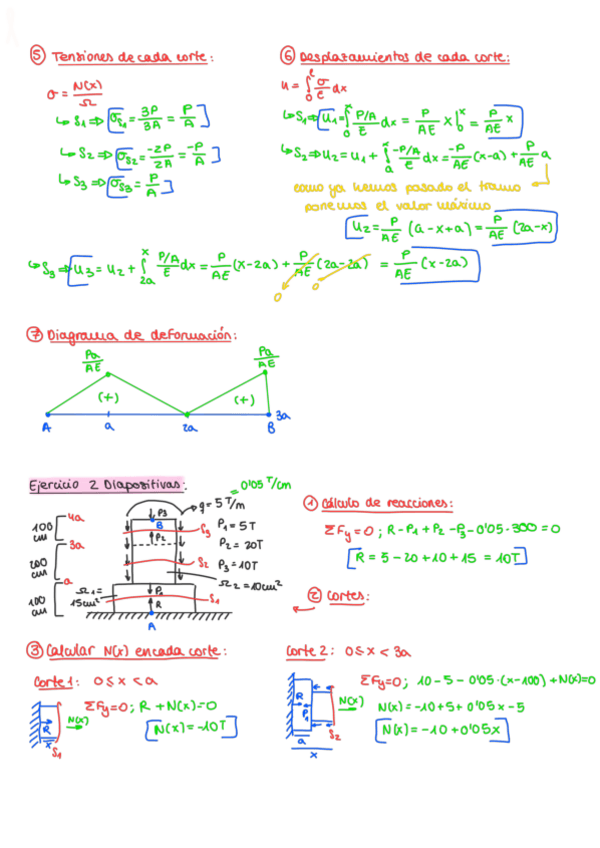 ⑤ Tensiones de cada corte:
σ = N(x)/Ω
↳ S1 ⇒ [σS1 = 3P/3A = P/A]
↳ S2 ⇒ [σS2 = -2P/2A = -P/A]
↳ S3 ⇒ [σS3 = P/A]
⑥ Desplazamientos de cada corte:
u = ∫₀ˡ σ/E dx
↳ S1 ⇒ [u1 = ∫₀ˣ P/A/E dx = P/AE x|₀ˣ = P/AE x]
↳ S2 ⇒ u2 = u1 + ∫ₐˣ -P/A/E dx = -P/AE (x-a) + P/AE a
como ya hemos pasado el tramo
ponemos el valor máximo
[u2 = P/AE (a-x+a) = P/AE (2a-x)]
↳ S3 ⇒ [u3 = u2 + ∫₂ₐˣ P/A/E dx = P/AE (x-2a) + P/AE (2a-2a) = P/AE (x-2a)]
0 0
⑦ Diagrama de deformación:
Pa/AE Pa/AE
(+) (+)
A a 2a B 3a
Ejercicio 2 Diapositivas:
= 0'05 T/cm
q = 5 T/m
P3
B
P2
S3
S2
P1
R
S1
A
4a
100 cm
3a
200 cm
a
100 cm
Ω1 = 15cm²
P1 = 5T
P2 = 20T
P3 = 10T
Ω2 = 10cm²
① Cálculo de reacciones:
ΣFy = 0; R - P1 + P2 - P3 - 0'05·300 = 0
[R = 5 - 20 + 10 + 15 = 10T]
② Cortes:
③ Calcular N(x) en cada corte:
Corte 1: 0 ≤ x < a
ΣFy = 0; R + N(x) = 0
[N(x) = -10T]
R N(x)
x S1
Corte 2: 0 ≤ x < 3a
ΣFy = 0; 10 - 5 - 0'05·(x-100) + N(x) = 0
N(x) = -10 + 5 + 0'05x - 5
[N(x) = -10 + 0'05x]
R P1 N(x)
S2
a
x